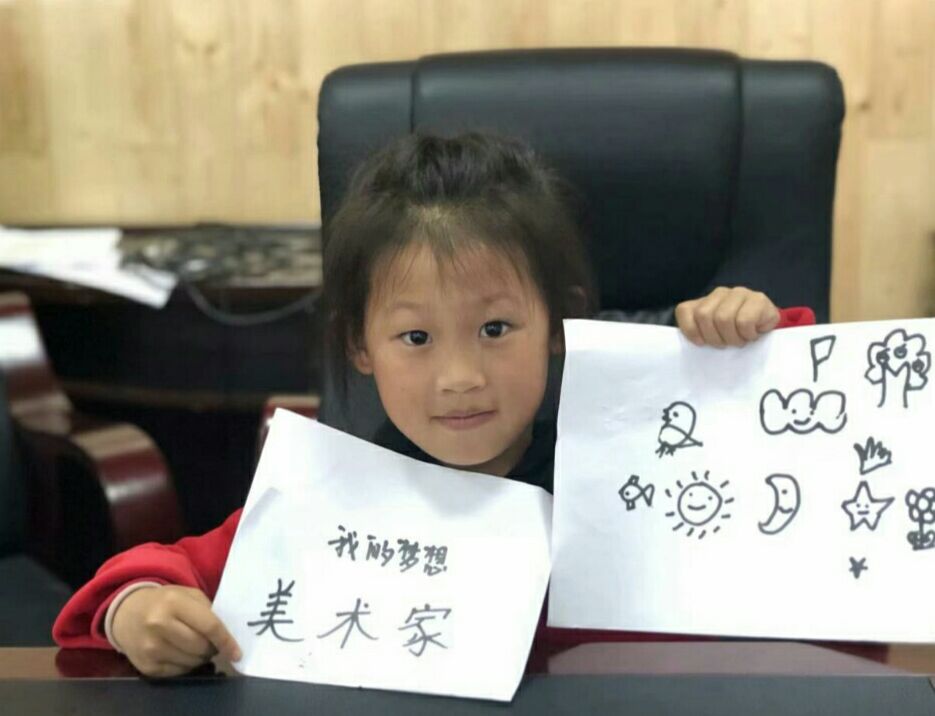 我的梦想
美术家